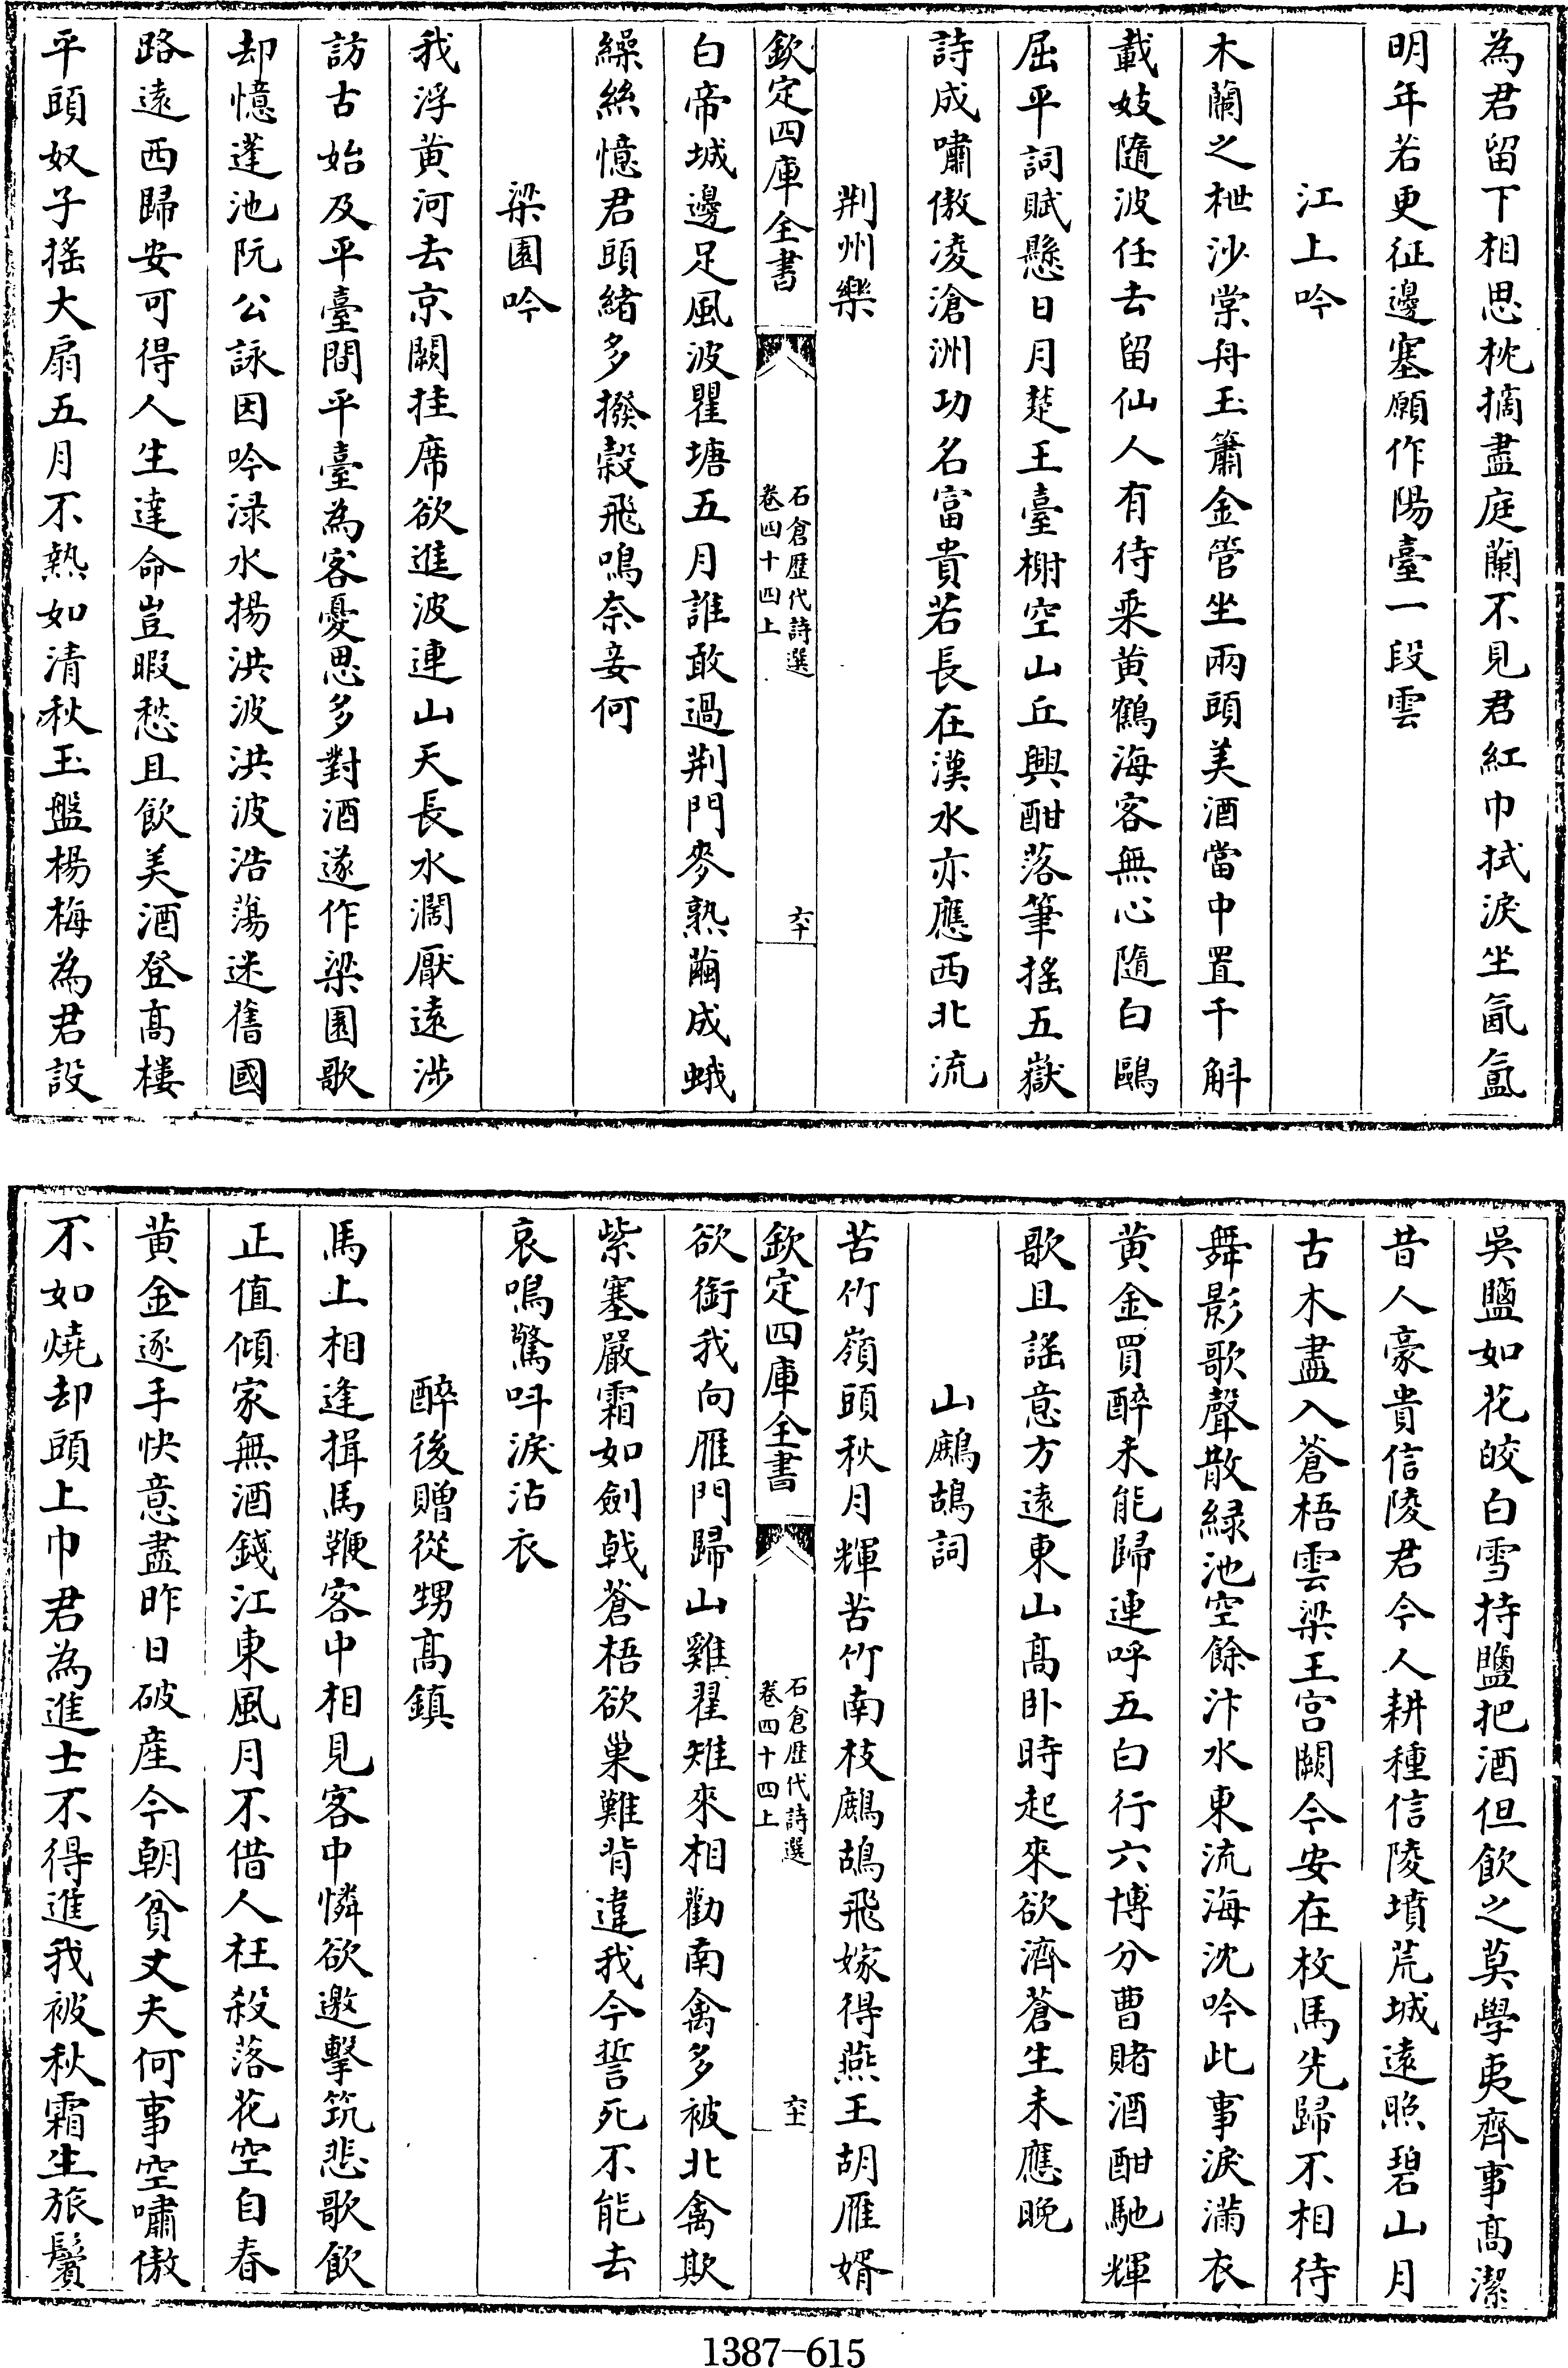 為君留下相思枕摘盡庭蘭不見君紅巾拭淚坐氤氳
明年若更征邊塞願作陽臺一段雲
江上吟
木蘭之枻沙棠舟玉簫金管坐兩頭美酒當中置千斛
載妓隨波任去留仙人有待乘黄鶴海客無心隨白鷗
屈平詞賦懸日月楚王臺榭空山丘興酣落筆搖五嶽
詩成嘯傲凌滄洲功名富貴若長在漢水亦應西北流
荆州樂
欽定四庫全書
石倉歷代詩選
卷四十四上
六十
白帝城邊足風波瞿塘五月誰敢過荆門麥熟繭成蛾
繰絲憶君頭緒多撥穀飛鳴奈妾何
梁園吟
我浮黄河去京闕挂席欲進波連山天長水濶厭遠涉
訪古始及平臺間平臺為客憂思多對酒遂作梁園歌
却憶蓬池阮公詠因吟渌水揚洪波洪波浩蕩迷舊國
路遠西歸安可得人生達命豈暇愁且飲美酒登髙樓
平頭奴子搖大扇五月不熱如清秋玉盤楊梅為君設
吳鹽如花皎白雪持鹽把酒但飲之莫學夷齊事髙潔
昔人豪貴信陵君今人耕種信陵墳荒城遠照碧山月
古木盡入蒼梧雲梁王宫闕今安在枚馬先歸不相待
舞影歌聲散緑池空餘汴水東流海沈吟此事淚滿衣
黄金買醉未能歸連呼五白行六博分曹賭酒酣馳輝
歌且謡意方遠東山髙卧時起來欲濟蒼生未應晚
山鷓鴣詞
苦竹嶺頭秋月輝苦竹南枝鷓鴣飛嫁得燕王胡雁婿
欽定四庫全書
石倉歷代詩選
卷四十四上
六十一
欲銜我向雁門歸山雞翟雉來相勸南禽多被北禽欺
紫塞嚴霜如劍戟蒼梧欲巢難背違我今誓死不能去
哀鳴驚呌淚沾衣
醉後贈從甥髙鎮
馬上相逢揖馬鞭客中相見客中憐欲邀擊筑悲歌飲
正值傾家無酒錢江東風月不借人枉殺落花空自春
黄金逐手快意盡昨日破産今朝貧丈夫何事空嘯傲
不如燒却頭上巾君為進士不得進我被秋霜生旅鬢
1387—615